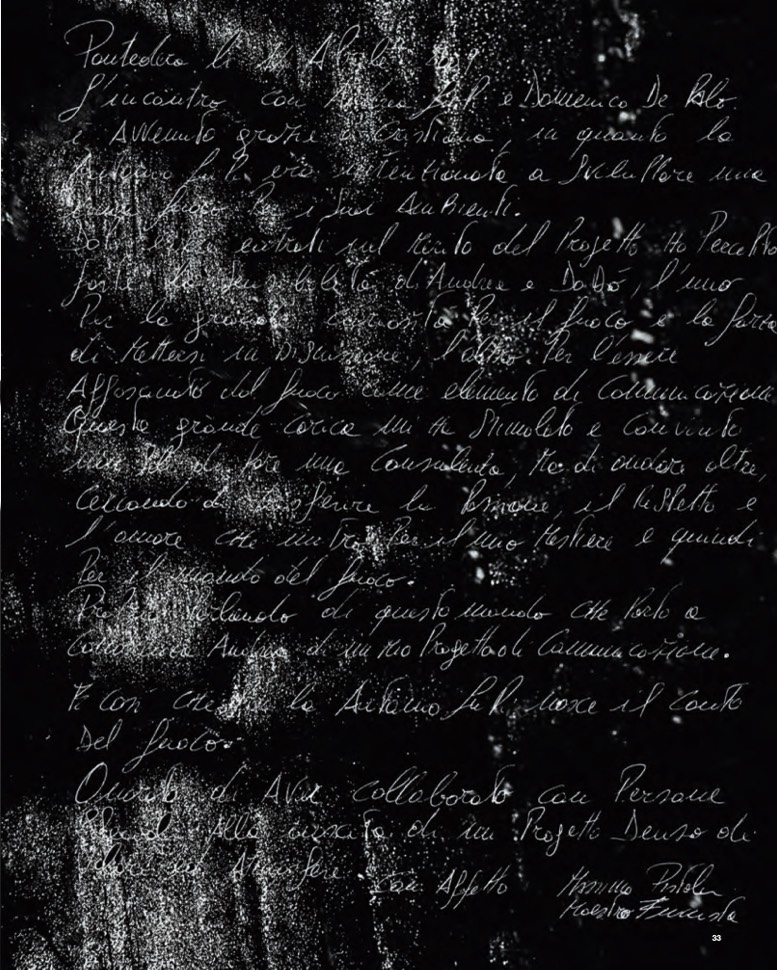 Pontedera li
L'incontro con Andrea e Domenico De Palo
è Avvenuto grazie a Cristiano, in quanto la
era intenzionata a Sviluppare una
i suoi Ambienti.
entrati nel merito del Progetto Ho Percepito
forte la sensibilità di Andrea e Dodò, l'uno
Per la grande curiosità Per il fuoco e la forza
di Mettersi in Discussione, l'altro Per l'essere
Affascinato dal fuoco come elemento di Comunicazione
Questa grande carica mi Ha Stimolato e Convinto
non sol di fare una Consulenza, Ma di andare oltre,
cercando di trasferire la Passione, il Rispetto e
l'amore che nutro Per il mio Mestiere e quindi
Per il mondo del fuoco.
Parlando di questo mondo che Porto a
conoscenza Andrea di un mio Progetto di Comunicazione.
E così che la nasce il Canto
Del fuoco.
Onorato di Aver collaborato con Persone
alla nascita di un Progetto Denso di
Atmosfere. Con Affetto Massimo
Maestro Fumista
33